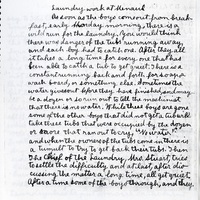 Laundry work at Howard
As soon as the boys come out from break-
fast, early Monday morning, there is a
wild run for the laundry. You would think
there was danger of the tubs running away,
and each boy had to catch one. After they all
it takes a long time for every one that had
been able to catch a tub to get quiet. There is a
constant running back and forth for soap or
wash board, or something else. Sometimes the
water gives out before they have finished and may
be a dozen or so run out to tell the machinist
that there is no water. While these boys are gone
some of the other boys that did not get a tub will
take those tubs that were occupied by the dozen
or so more that ran out to cry, "No water,"
and when the owners of the tubs come in there is
a tumult to try to get back their tubs. Then
The Chief of the Laundry, Mrs Stuart, tries
to settle the difficulty, and at last after dis-
cussing the matter a long time, all get quiet.
After a time some of the boys through, and they